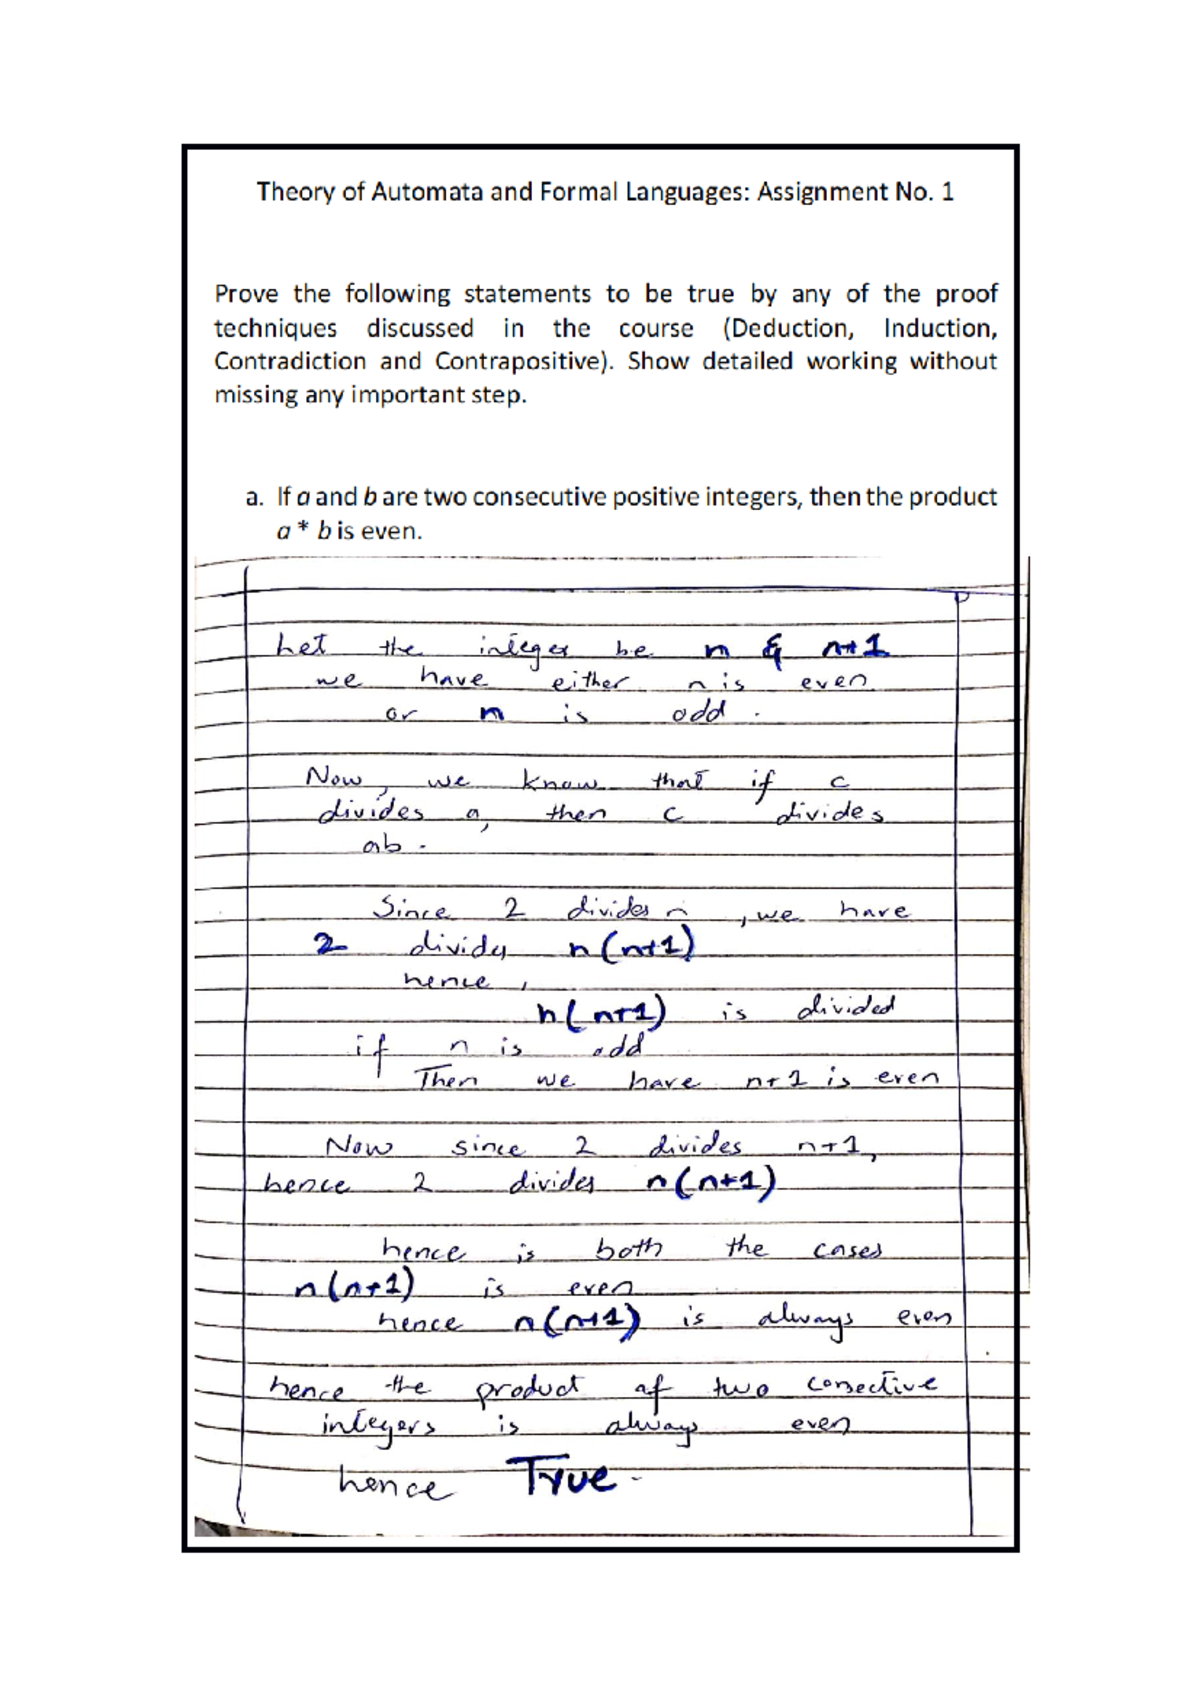 Theory of Automata and Formal Languages: Assignment No. 1
Prove the following statements to be true by any of the proof
techniques discussed in the course (Deduction, Induction,
Contradiction and Contrapositive). Show detailed working without
missing any important step.
a. If a and b are two consecutive positive integers, then the product
a * b is even.
Let the integer be n & n+1
we have either n is even
or n is odd .
Now, we know that if c
divides a, then c divides
ab .
Since 2 divides n , we have
2 divides n(n+1)
hence ,
n(n+1) is divided
if n is odd
Then we have n+1 is even
Now since 2 divides n+1,
hence 2 divides n(n+1)
hence is both the cases
n(n+1) is even
hence n(n+1) is always even
hence the product of two consective
integers is always even
hence True.